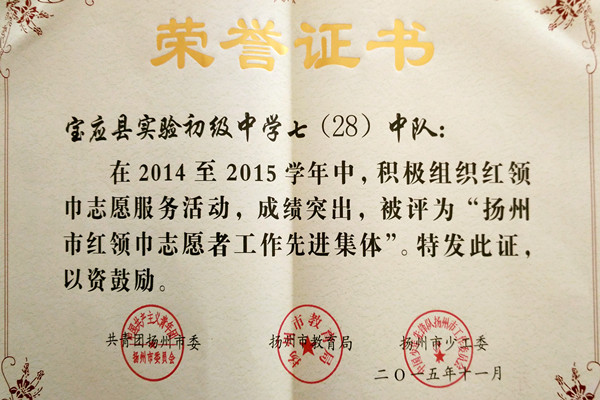 荣誉证书
宝应县实验初级中学七（28）中队：
在2014至2015学年中，积极组织红领
巾志愿服务活动，成绩突出，被评为“扬州
市红领巾志愿者工作先进集体”。特发此证，
以资鼓励。
共青团扬州市委 扬州市教育局 扬州市少工委
二〇一五年十一月
扬州市委员会
扬州市教育局